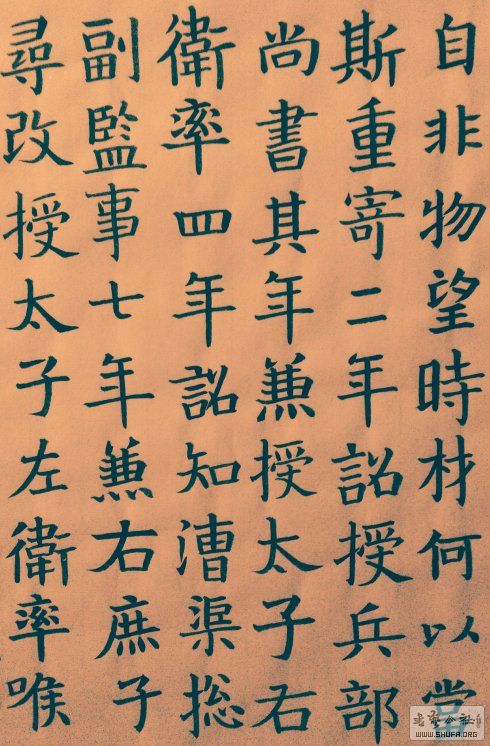 自非物望時材何以當
斯重寄二年詔授兵部
尚書其年兼授太子右
衛率四年詔知漕渠総
副監事七年兼右庶子
尋改授太子左衛率喉
WWW.SHUFA.ORG